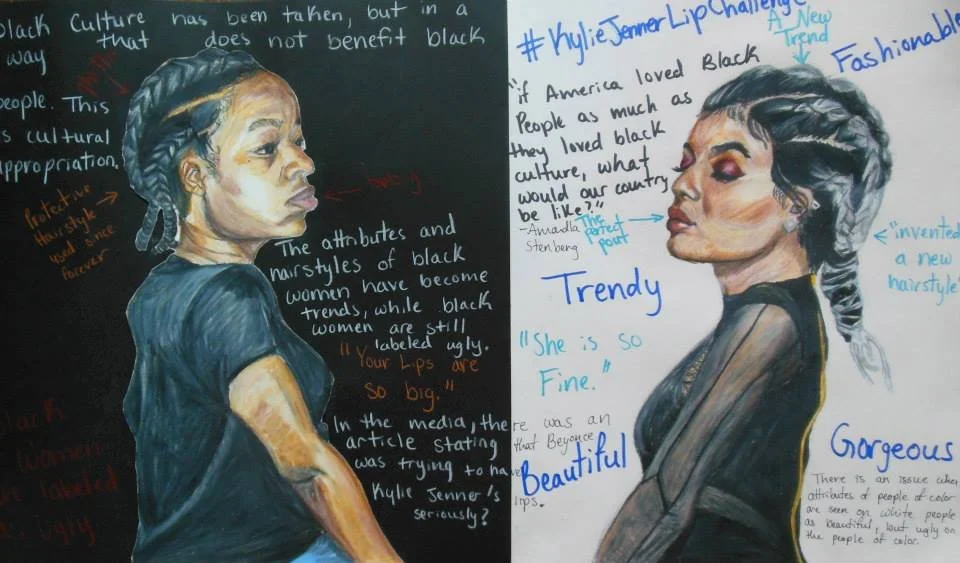 Black Culture has been taken, but in a
way that does not benefit black
people. This
is cultural
appropriation.
Protective
Hairstyle
used since
forever
The attributes and
hairstyles of black
women have become
trends, while black
women are still
labeled ugly.
"Your Lips are
so big."
In the media, there was an
article stating that Beyonce
was trying to have
Kylie Jenner's lips.
seriously?
Black
women
are labeled
ugly
#KylieJennerLipChallenge
A New
Trend
Fashionable
"if America loved Black
People as much as
they loved black
culture, what
would our country
be like?"
-Amadla
Stenberg
The
perfect
pout
"invented
a new
hairstyle"
Trendy
"She is so
Fine."
Beautiful
Gorgeous
There is an issue when
attributes of people of color
are seen on white people
as beautiful, but ugly on
the people of color.